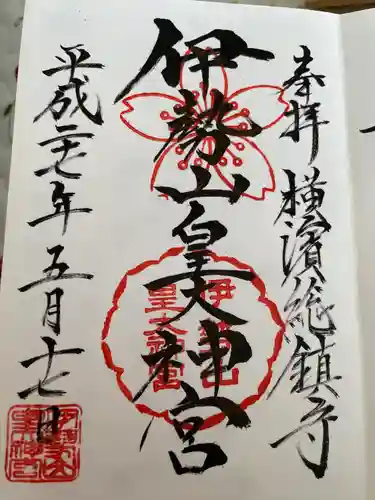 奉拝 横濱総鎮守
伊勢山皇大神宮
平成二十七年五月十七日
伊勢山
皇大神宮